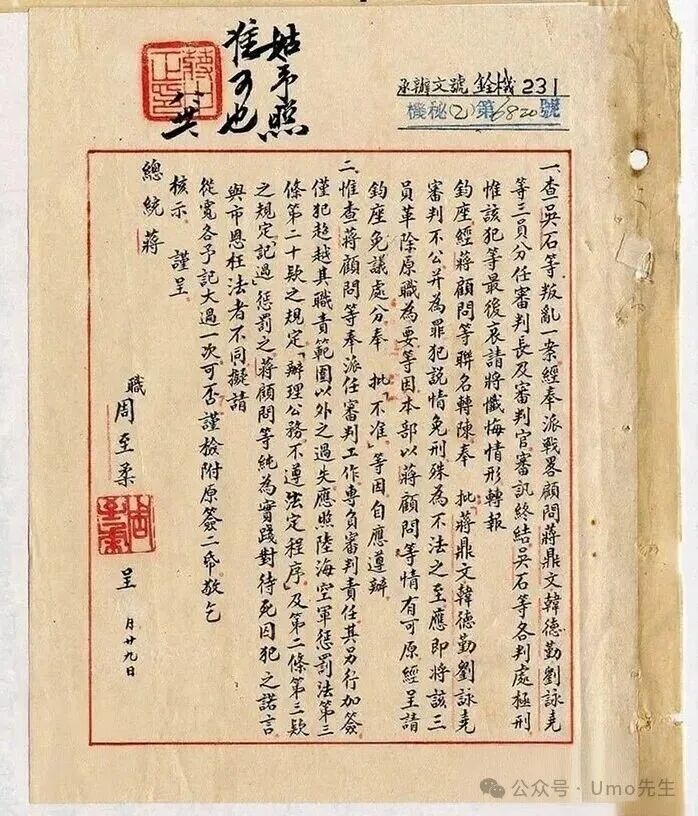 姑予照
准可也
承辦文號 銓機 231
機秘(乙)第6820號
一、查吳石等叛亂一案經奉派戰畧顧問蔣鼎文韓德勤劉詠堯
等三員分任審判長及審判官審訊終結吳石等各判處極刑
惟該犯等最後哀請將懺悔情形轉報
鈞座經蔣顧問等聯名轉陳奉 批「蔣鼎文韓德勤劉詠堯
審判不公并為罪犯說情免刑殊為不法之至應即將該三
員革除原職為要」等因本部以蔣顧問等情有可原經呈請
鈞座免議處分奉 批「不准」等因自應遵辦
二、惟查蔣顧問等奉派任審判工作專負審判責任其另行加簽
僅犯超越其職責範圍以外之過失應照陸海空軍懲罰法第三
條第二十款之規定「辦理公務不遵法定程序」及第二條第三款
之規定「記過」懲罰之蔣顧問等純為實踐對待死囚犯之諾言
與市恩枉法者不同擬請
從寬各予記大過一次可否謹檢附原簽二帋敬乞
核示 謹呈
總統蔣
職 周至柔 呈 月廿九日
公众号 · Umo先生